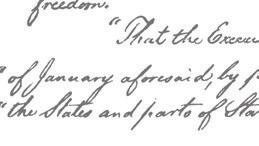 freedom.
"That the Execu
"of January aforesaid, by p
"the States and parts of Sta